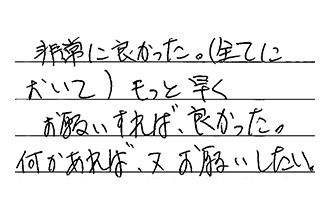 非常に良かった。(全てに
おいて) もっと早く
お願いすれば、良かった。
何かあれば、又お願いしたい。